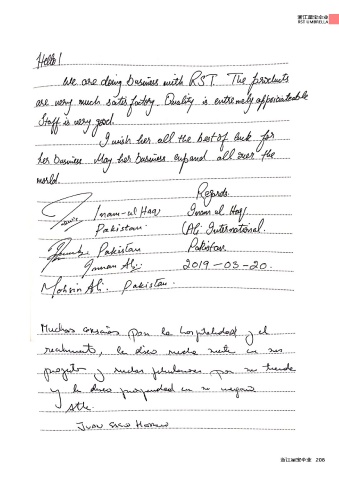 浙江丽宝企业
RST UMBRELLA
Hello!
We are doing business with RST. The products
are very much satisfactory. Quality is entremely
Staff is very good.
I wish her all the best of luck for
her business May her business expand all over the
world.
Regards.
Inam-ul Haq Inam ul Haq.
Pakistan. (Ali International.
Pakistan Pakistan.
Imran Ali. 2019-05-20.
Mohsin Ali. Pakistan.
Muchas gracias por la hospitalidad y el
le deseo mucha suerte en sus
y muchas por su tienda
y le deseo prosperidad en su negocio
Atte.
Juan
206